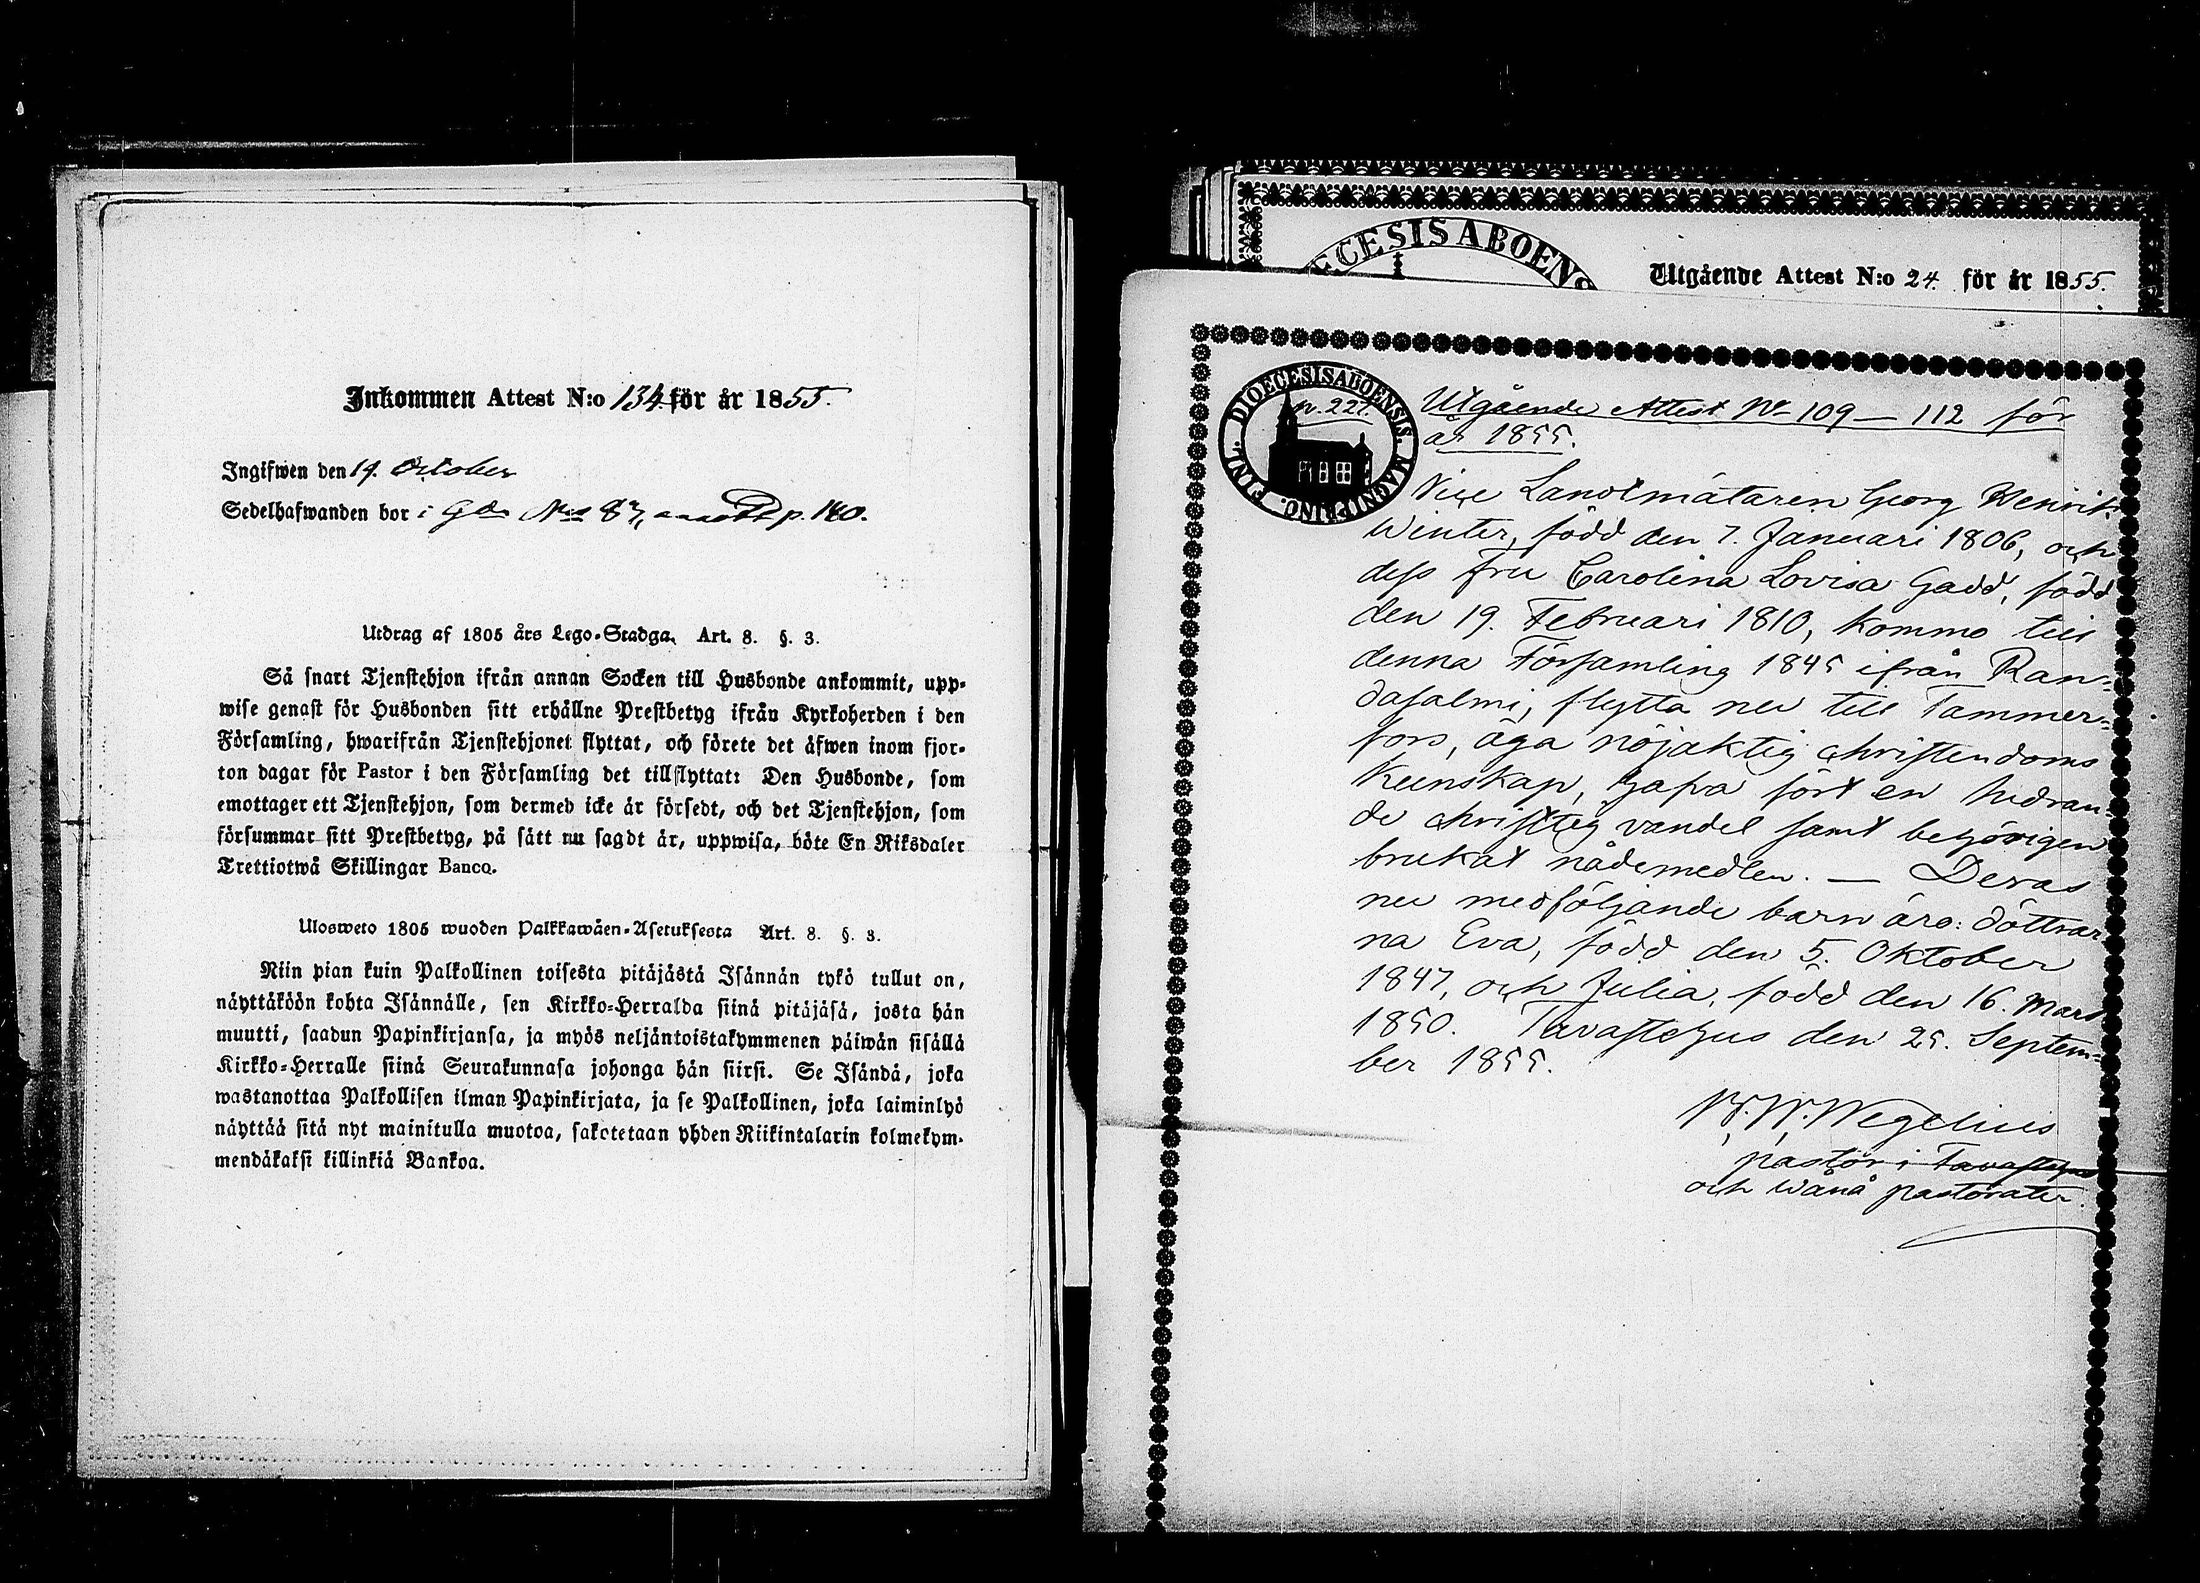 Inkommen Attest N:o 134 för år 1855.
Ingifwen den 19. October
Sedelhafwanden bor i Gdn No 87, p. 140.
Utdrag af 1805 års Lego-Stadga. Art. 8. §. 3.
Så snart Tjenstehjon ifrån annan Socken till Husbonde ankommit, upp-
wise genast för Husbonden sitt erhållne Prestbetyg ifrån Kyrkoherden i den
Församling, hwarifrån Tjenstehjonet flyttat, och förete det äfwen inom fjor-
ton dagar för Pastor i den Församling det tillflyttat: Den Husbonde, som
emottager ett Tjenstehjon, som dermed icke är försedt, och det Tjenstehjon, som
försummar sitt Prestbetyg, på sätt nu sagdt är, uppwisa, böte En Riksdaler
Trettiotwå Skillingar Banco.
Ulosweto 1805 wuoden Palkkawäen-Asetuksesta Art. 8. §. 3.
Niin pian kuin Palkollinen toisesta pitäjästä Isännän tykö tullut on,
näyttäköön kohta Isännälle, sen Kirkko-Herralda siinä pitäjäsä, josta hän
muutti, saadun Papinkirjansa, ja myös neljäntoistakymmenen päiwän sisällä
Kirkko-Herralle siinä Seurakunnasa johonga hän siirsi. Se Isändä, joka
wastanottaa Palkollisen ilman Papinkirjata, ja se Palkollinen, joka laiminlyö
näyttää sitä nyt mainitulla muotoa, sakotetaan yhden Riikintalarin kolmekym-
mendäkaksi killinkiä Bankoa.
ECESIS ABOENS
Utgående Attest N:o 24. för år 1855.
DIOECESIS ABOENSIS. MAGNI PRINC. FINL.
p. 227.
Utgående Attest No 109 — 112 för
år 1855.
Vice Landtmätaren Georg Henrik
Winter, född den 7. Januari 1806, och
dess fru Carolina Lovisa Gadd, född
den 19. Februari 1810, komne till
denna Församling 1845 ifrån Ran-
dasalmi, flytta nu till Tammer-
fors, äga nöjaktig christendoms
kunskap, hafva fört en hedran-
de christlig vandel samt behörigen
brukat nådemedlen. — Deras
nu medföljande barn äro: döttrar-
na Eva, född den 5. Oktober
1847, och Julia, född den 16. Mars
1850. Tavastehus den 25. Septem-
ber 1855.
Wegelius
pastor i Tavastehus
och Wånå pastorater.